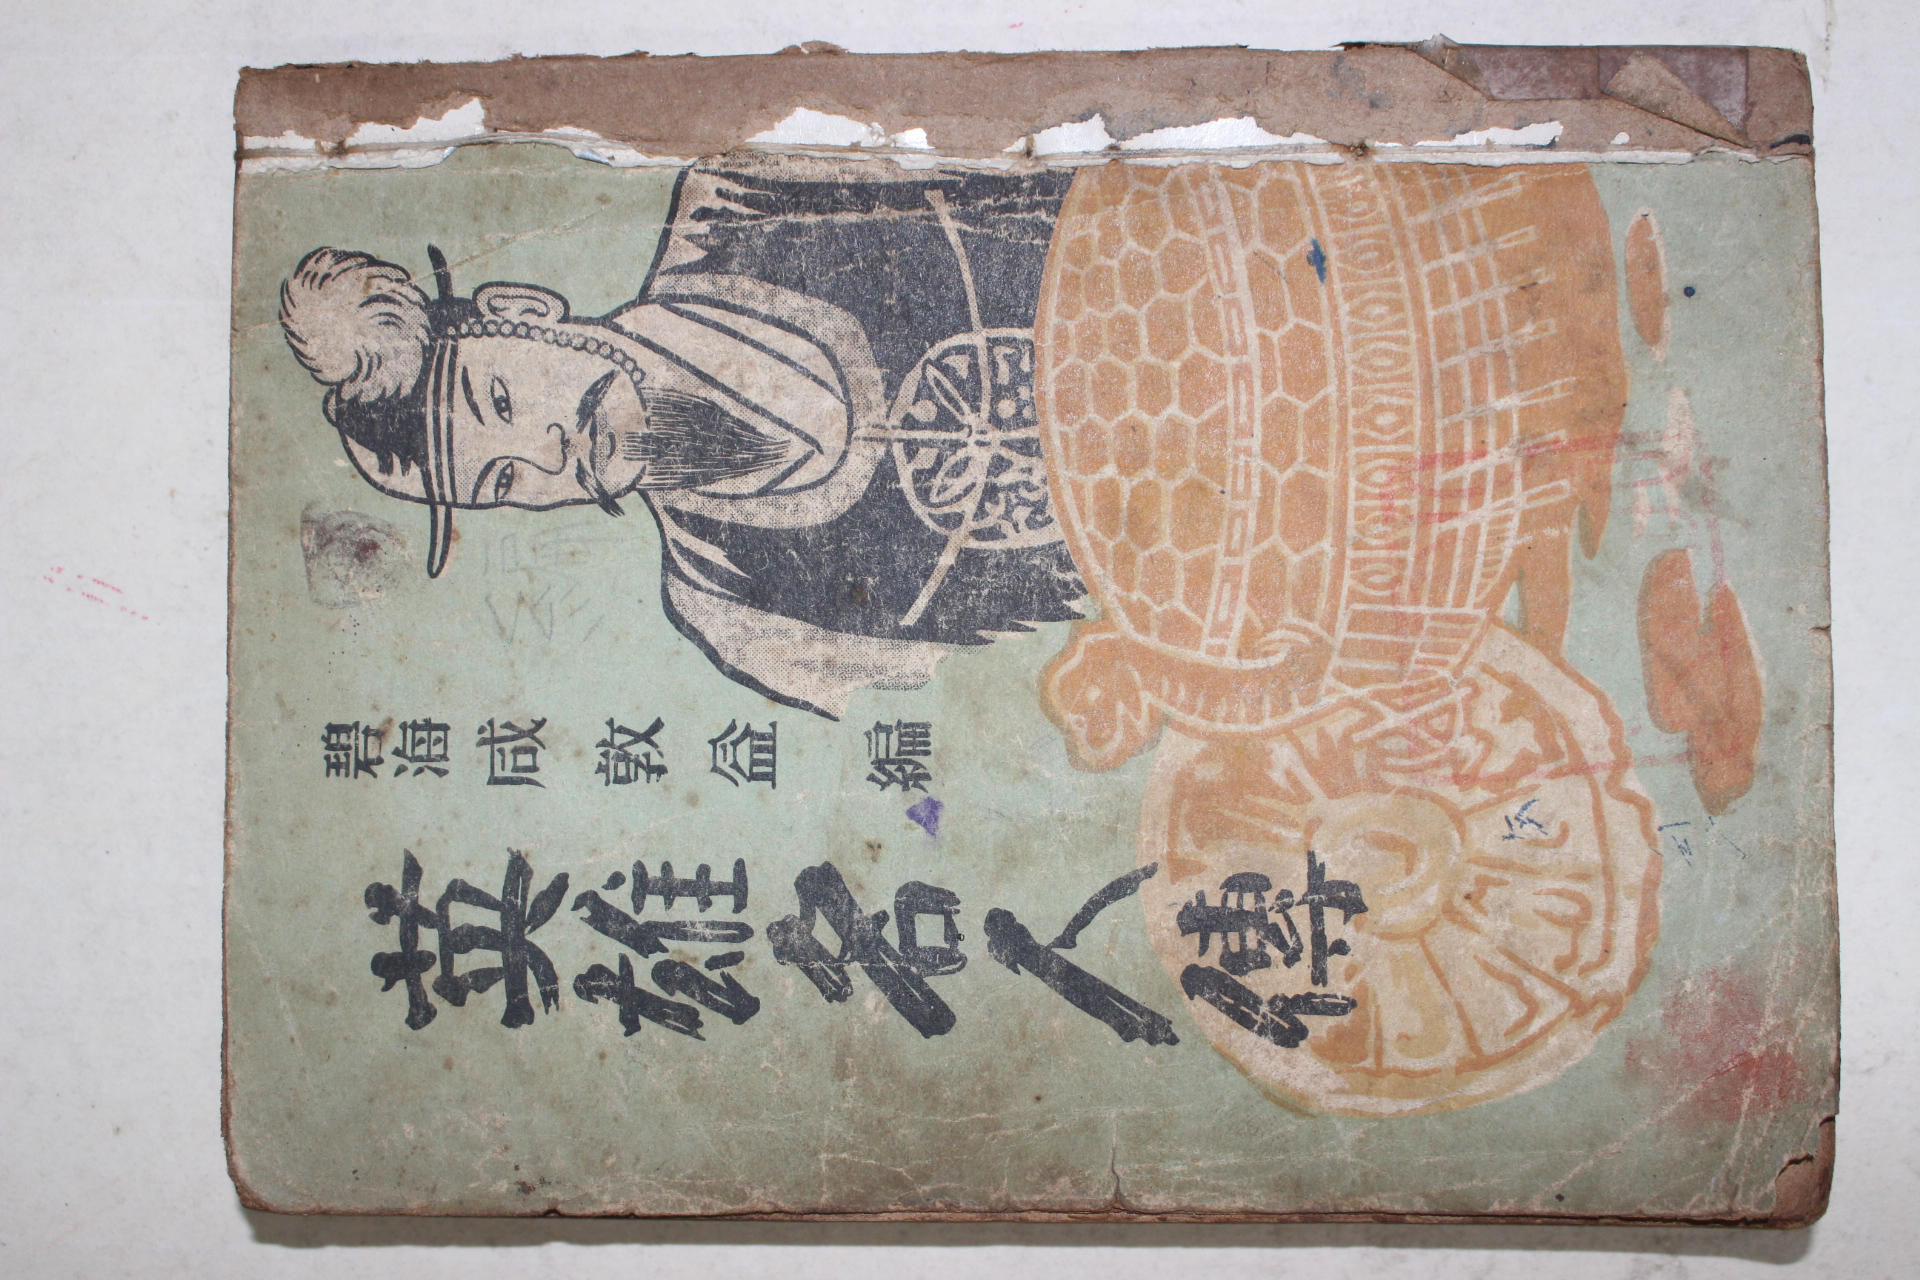 英雄名人傳
碧海 咸敦益 編